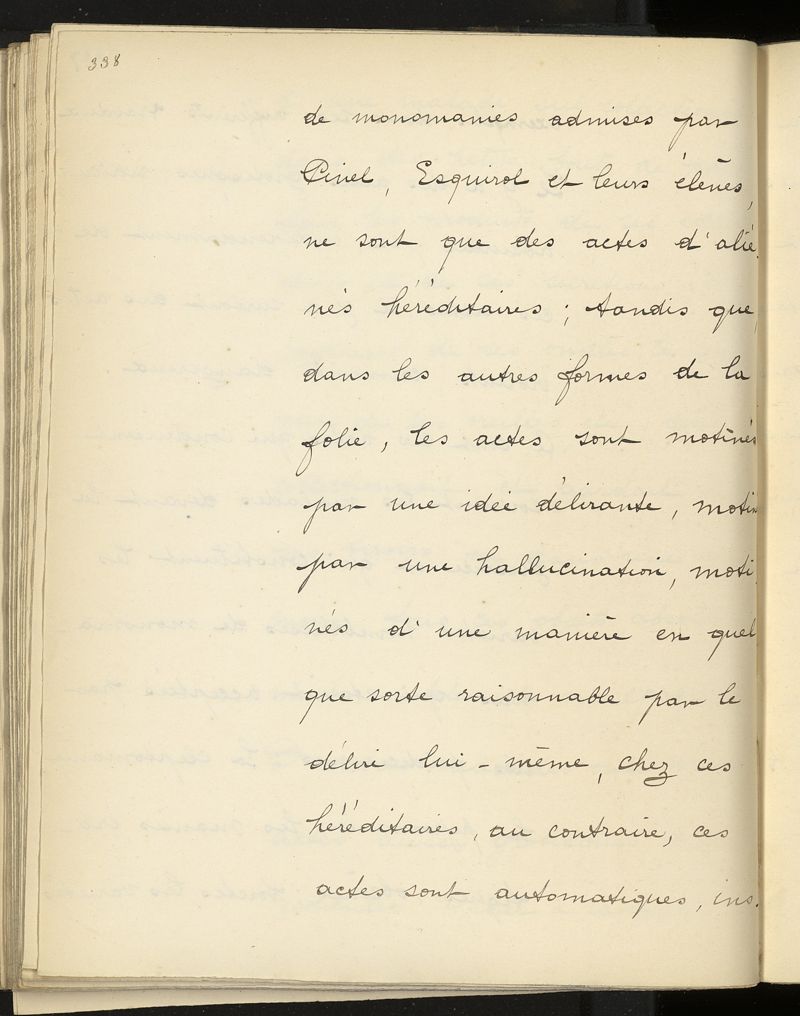 338
de monomanies admises par
Pinel, Esquirol et leurs élèves,
ne sont que des actes d'alié-
nés héréditaires ; tandis que,
dans les autres formes de la
folie, les actes sont motivés
par une idée délirante, motivés
par une hallucination, moti-
vés d'une manière en quel-
que sorte raisonnable par le
délire lui-même, chez ces
héréditaires, au contraire, ces
actes sont automatiques, ins-